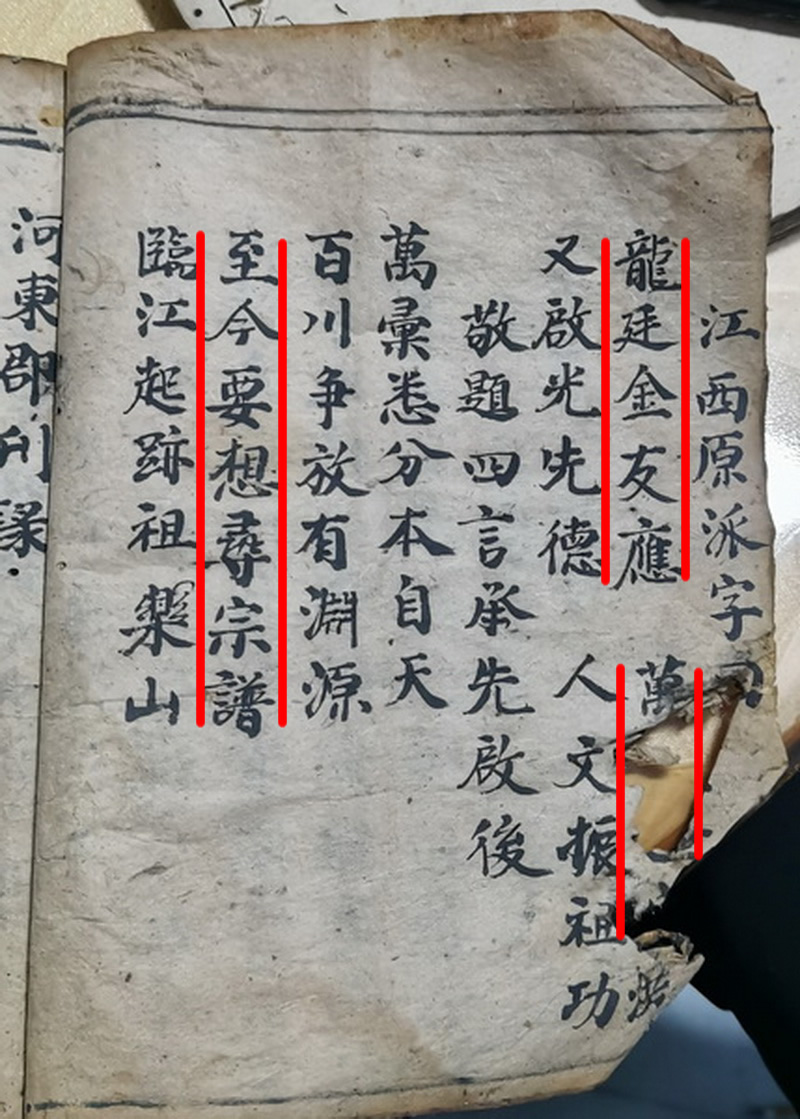 江西原派字
龍廷金友應 萬
又啟光先德 人文振祖功
敬題四言承先啟後
萬彙悉分本自天
百川争放有淵源
至今要想尋宗譜
臨江起跡祖槩山
河東郡